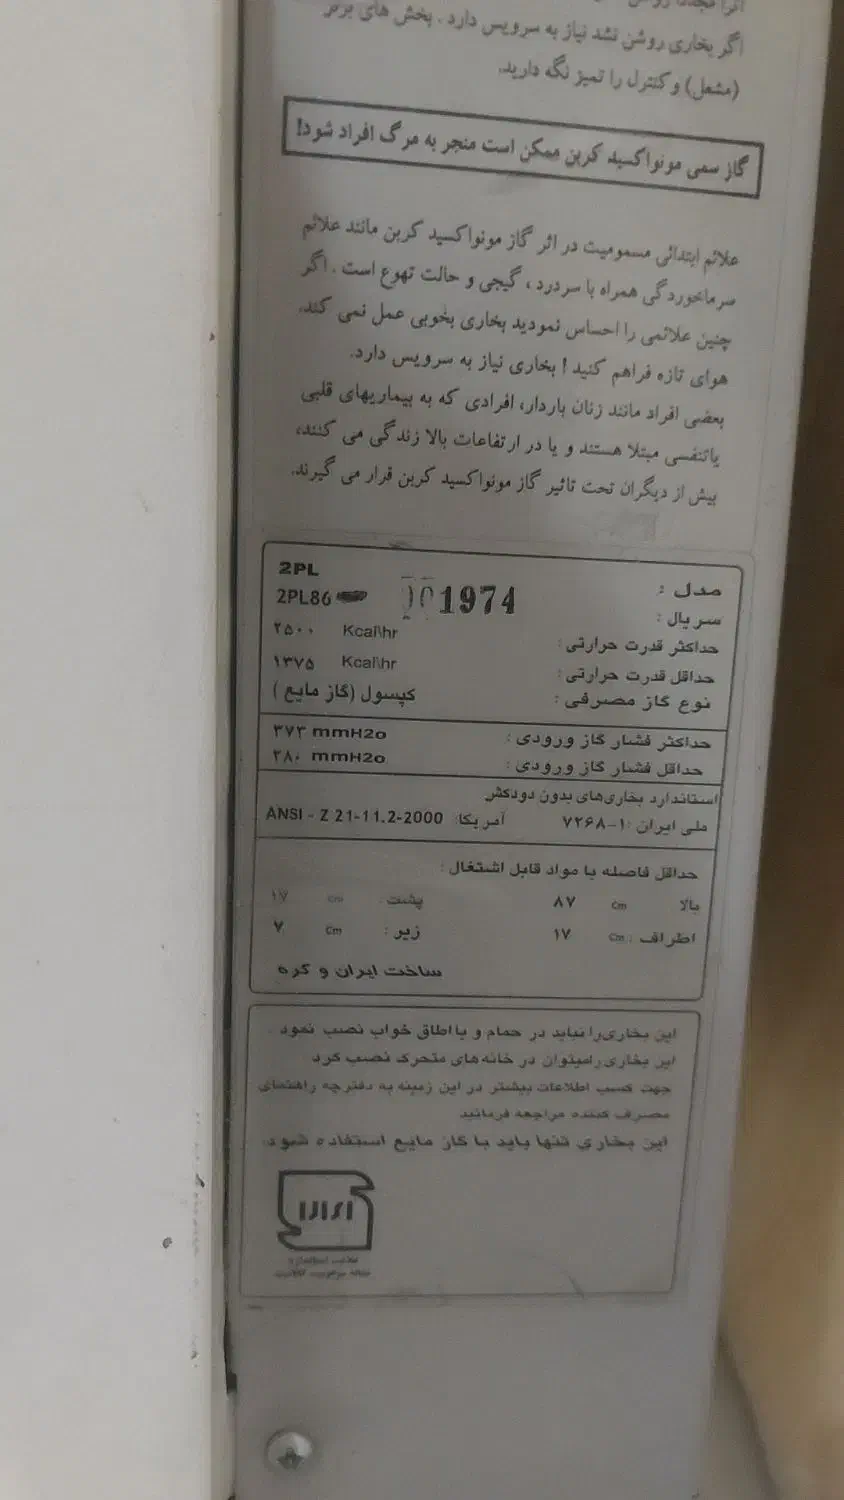 اگر بخاری روشن نشد نیاز به سرویس دارد . بخش های برنر
(مشعل) و کنترل را تمیز نگه دارید.
گاز سمی مونواکسید کربن ممکن است منجر به مرگ افراد شود!
علائم ابتدائی مسمومیت در اثر گاز مونواکسید کربن مانند علائم
سرماخوردگی همراه با سردرد ، گیجی و حالت تهوع است . اگر
چنین علائمی را احساس نمودید بخاری بخوبی عمل نمی کند.
هوای تازه فراهم کنید ! بخاری نیاز به سرویس دارد.
بعضی افراد مانند زنان باردار، افرادی که به بیماریهای قلبی
یاتنفسی مبتلا هستند و یا در ارتفاعات بالا زندگی می کنند،
بیش از دیگران تحت تاثیر گاز مونواکسید کربن قرار می گیرند.
مدل : 2PL
سریال : 2PL86 001974
حداکثر قدرت حرارتی : ۲۵۰۰ Kcal\hr
حداقل قدرت حرارتی : ۱۳۷۵ Kcal\hr
نوع گاز مصرفی : کپسول (گاز مایع )
حداکثر فشار گاز ورودی : ۳۷۳ mmH2o
حداقل فشار گاز ورودی : ۲۸۰ mmH2o
استاندارد بخاری‌های بدون دودکش
ملی ایران :۱-۷۲۶۸ آمریکا: ANSI - Z 21-11.2-2000
حداقل فاصله با مواد قابل اشتغال :
بالا cm ۸۷ پشت : cm ۱۷
اطراف : cm ۱۷ زیر : cm ۷
ساخت ایران و کره
این بخاری‌را نباید در حمام و یا اطاق خواب نصب نمود .
این بخاری رامیتوان در خانه های متحرک نصب کرد
جهت کسب اطلاعات بیشتر در این زمینه به دفترچه راهنمای
مصرف کننده مراجعه فرمائید
این بخاری تنها باید با گاز مایع استفاده شود.